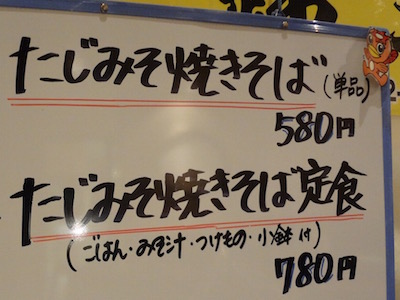 たじみそ焼きそば(単品)
580円
たじみそ焼きそば定食
(ごはん・みそ汁・つけもの・小鉢付)
780円